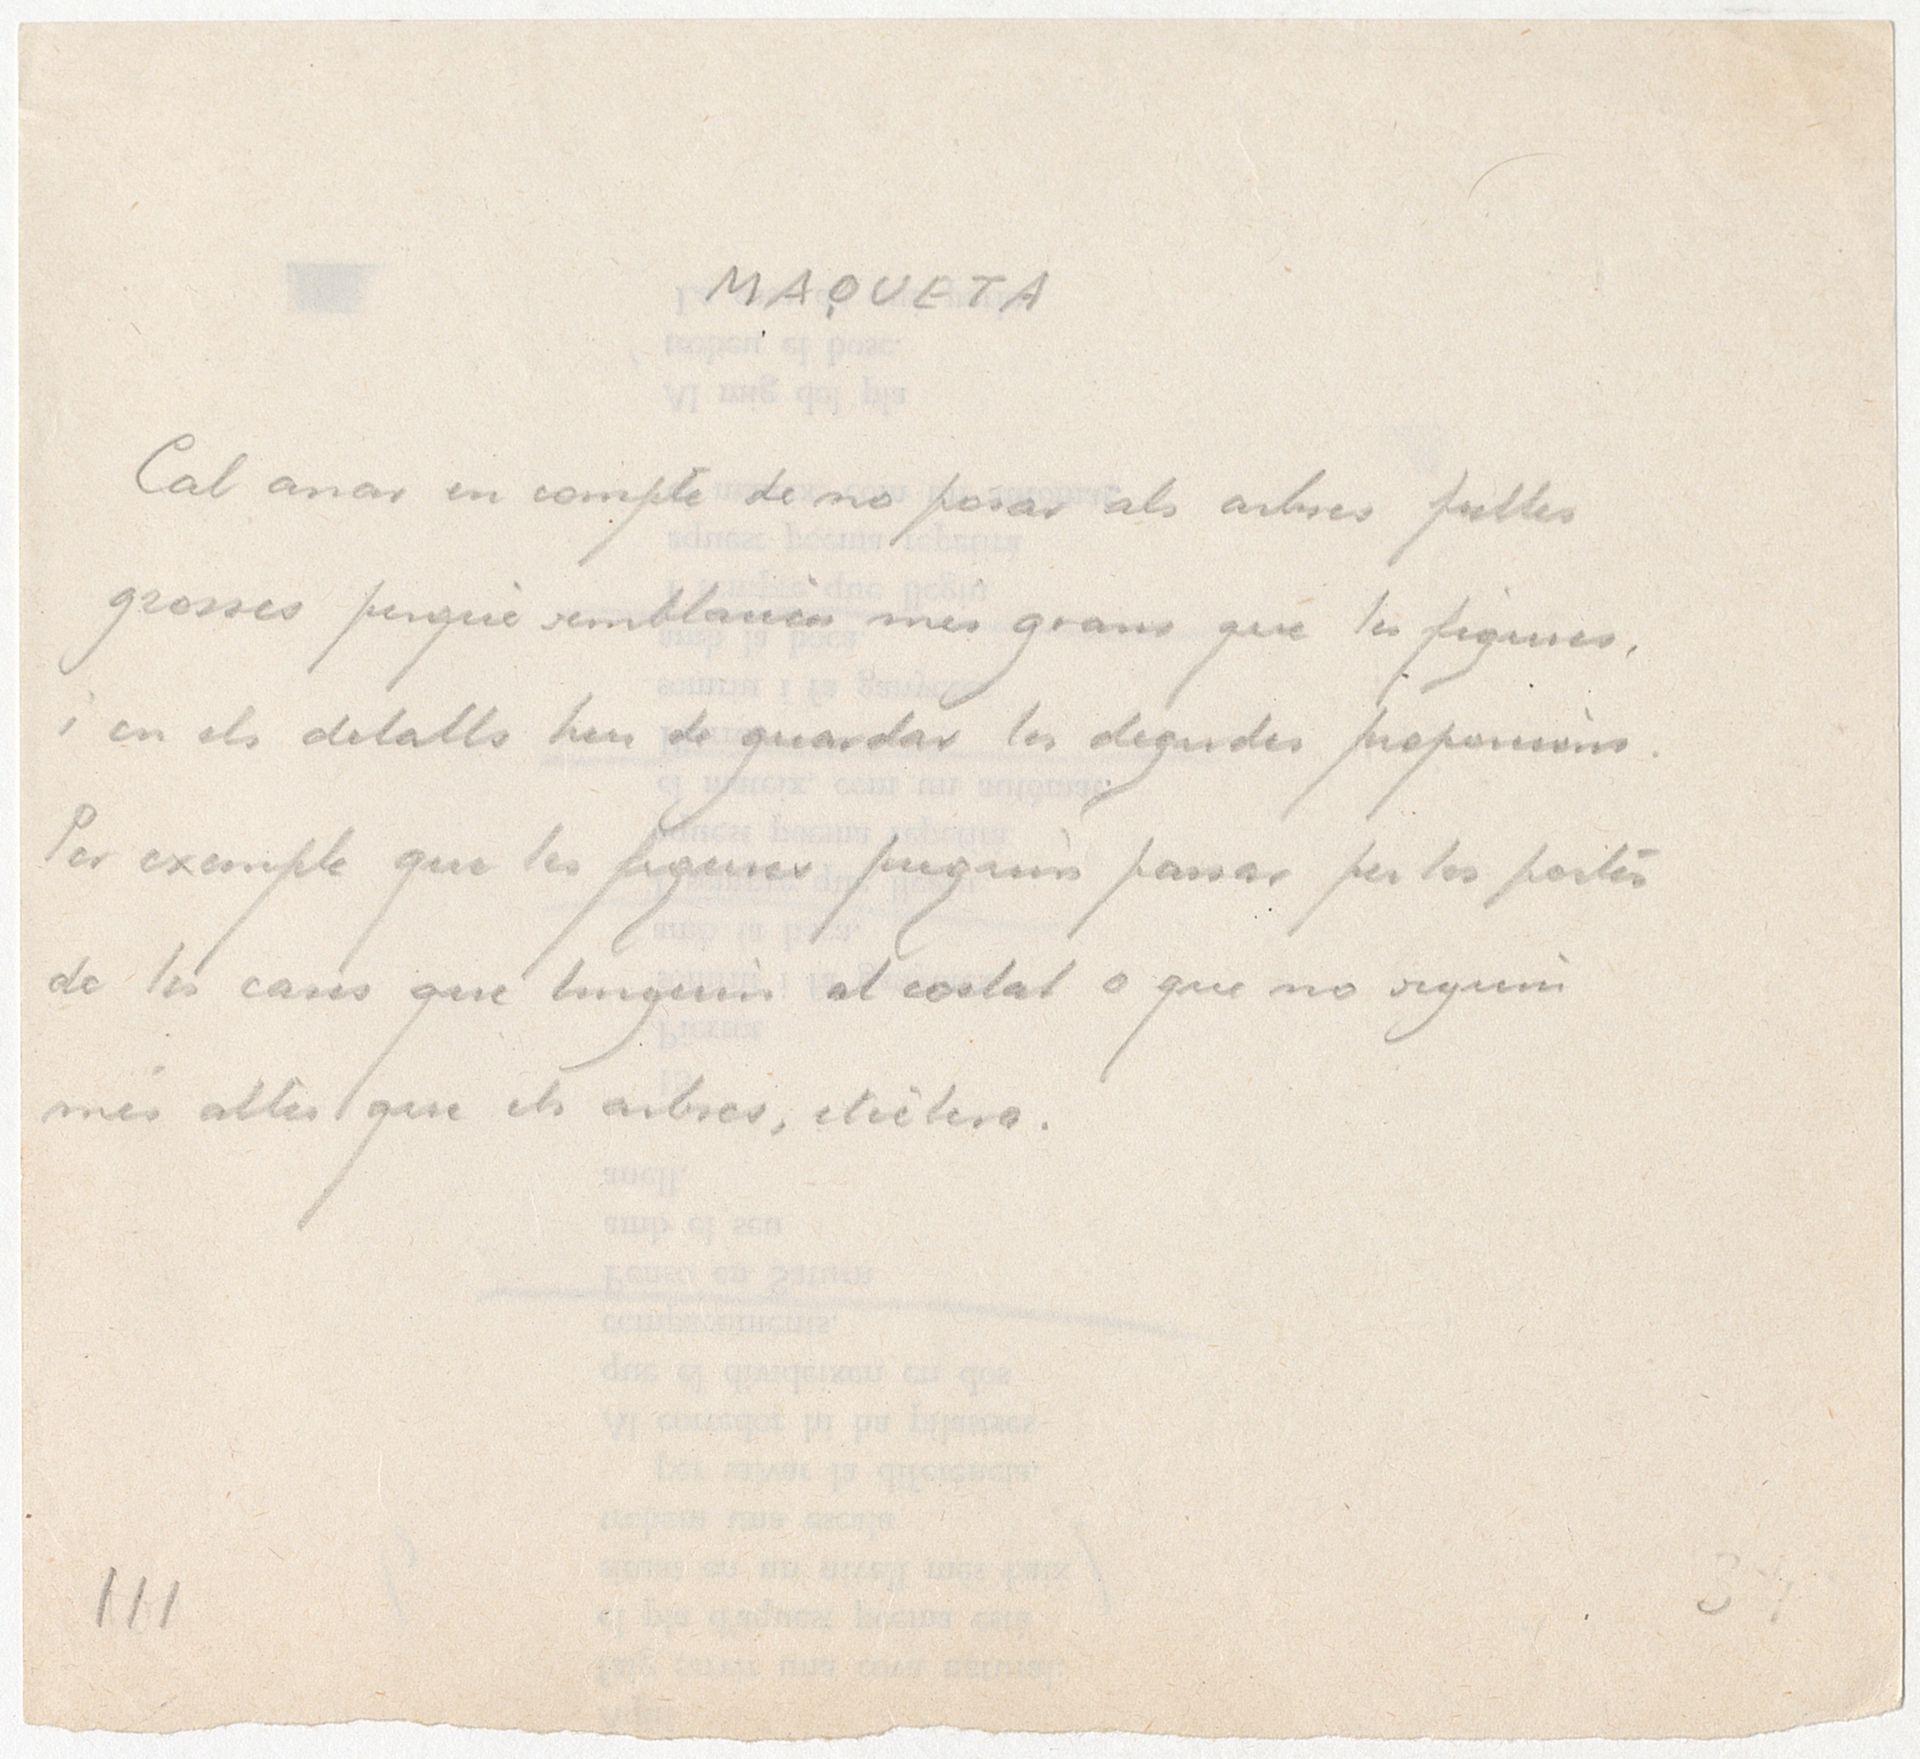 MAQUETA
Cal anar en compte de no posar als arbres fulles
grosses perquè semblarien mes grans que les figures,
i en els detalls heu de guardar les degudes proporcions.
Per exemple que les figures puguin passar per les portes
de les cases que tinguin al costat o que no siguin
més altes que els arbres, etcètera.
III
37